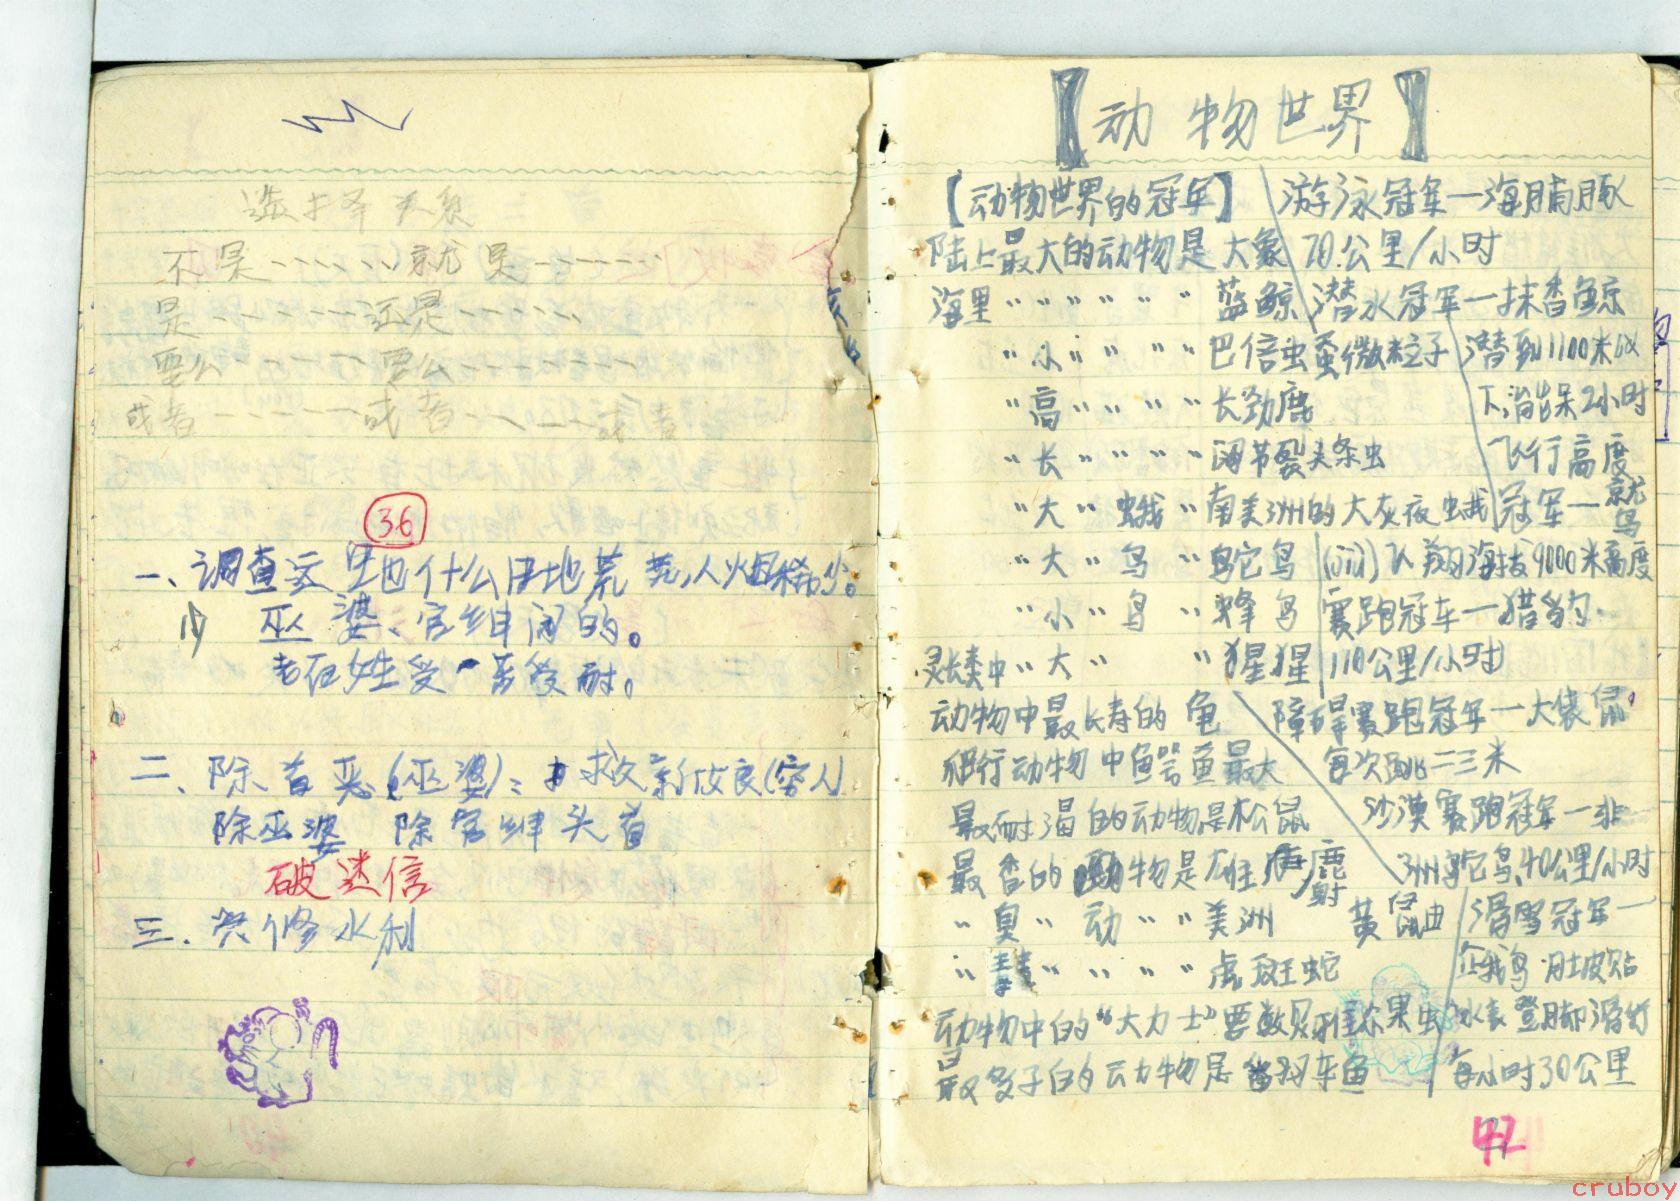 选择关系
不是……就是……
是……还是……
要么……要么……
或者……或者……或者
36
一、调查这里也什么田地荒芜,人火烟稀少。
巫婆、官绅闹的。
老百姓受苦受耐。
二、除首恶(巫婆):救新放良(穷人)
除巫婆 除官绅头首
破迷信
三、兴修水利
【动物世界】
【动物世界的冠军】
陆上最大的动物是大象
海里〃〃〃〃〃〃蓝鲸
〃小〃〃〃〃巴信虫蚤微粒子
〃高〃〃〃〃长劲鹿
〃长〃〃〃〃阔节裂头条虫
〃大〃蛾〃南美洲的大灰夜蛾
〃大〃鸟〃鸵鸟
〃小〃鸟〃蜂鸟
灵长类中〃大〃〃猩猩
动物中最长寿的龟
爬行动物中鱼咢鱼最大
最耐渴的动物是松鼠
最香的动物是雄麝
〃臭〃动〃〃美洲黄鼠由
〃毒〃〃〃〃虎斑蛇
动物中的“大力士”要数果虫
最多子的动物是翻车鱼
游泳冠军—海脯豚
70公里/小时
潜水冠军—抹香鲸
潜到1100米以
下,能呆2小时
飞行高度
冠军—就鸟
飞翔海拔9000米高度
赛跑冠军—猎豹
110公里/小时
障碍赛跑冠军—大袋鼠
每次跳二三米
沙漠赛跑冠军—非
洲鸵鸟,40公里/小时
滑雪冠军—
企鹅鸟 肚皮贴
冰表登脚滑行
每小时30公里
42
cruboy